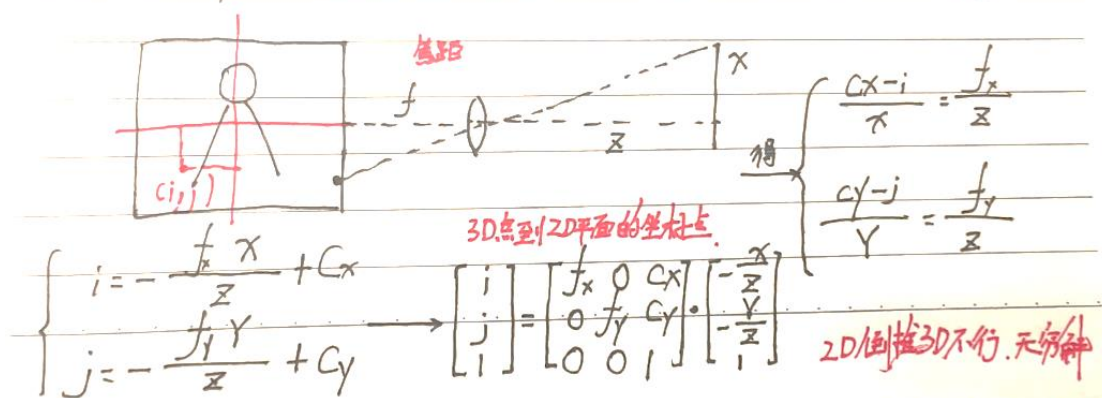 焦距
f
x
z
(i,j)
得
\frac{Cx-i}{x} = \frac{f_x}{z}
\frac{Cy-j}{Y} = \frac{f_y}{z}
3D点到2D平面的坐标点
i = -\frac{f_x x}{z} + Cx
j = -\frac{f_y Y}{z} + Cy
\begin{bmatrix} i \\ j \\ 1 \end{bmatrix} = \begin{bmatrix} f_x & 0 & Cx \\ 0 & f_y & Cy \\ 0 & 0 & 1 \end{bmatrix} \cdot \begin{bmatrix} -\frac{x}{z} \\ -\frac{Y}{z} \\ 1 \end{bmatrix}
2D倒推3D不行.无穷解